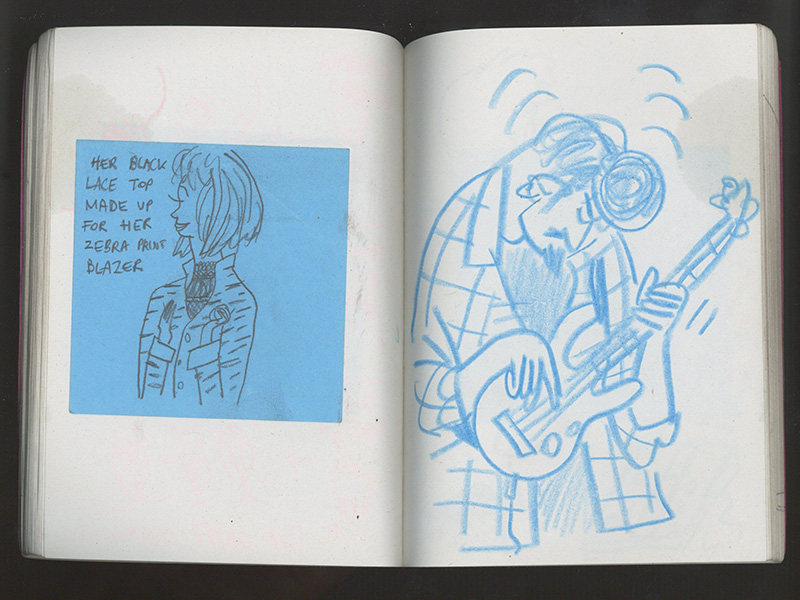 HER BLACK
LACE TOP
MADE UP
FOR HER
ZEBRA PRINT
BLAZER